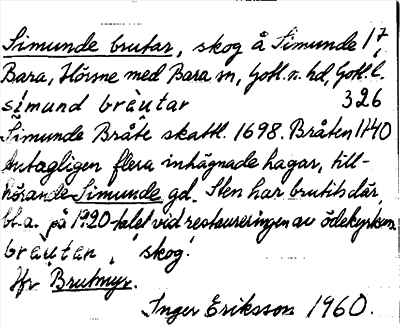 Simunde brutar, skog å Simunde 17,
Bara, Hörsne med Bara sn, Gotl. n. hd, Gotl. l.
simund bràutar 326
Simunde Bråte skattl. 1698. Bråten 1740
Antagligen flera inhägnade hagar, till-
hörande Simunde gd. Sten har brutits där,
bl.a. på 1920-talet vid restaureringen av ödekyrkan.
bràutan, 'skog'.
Jfr Brutmyr.
Inger Eriksson 1960.